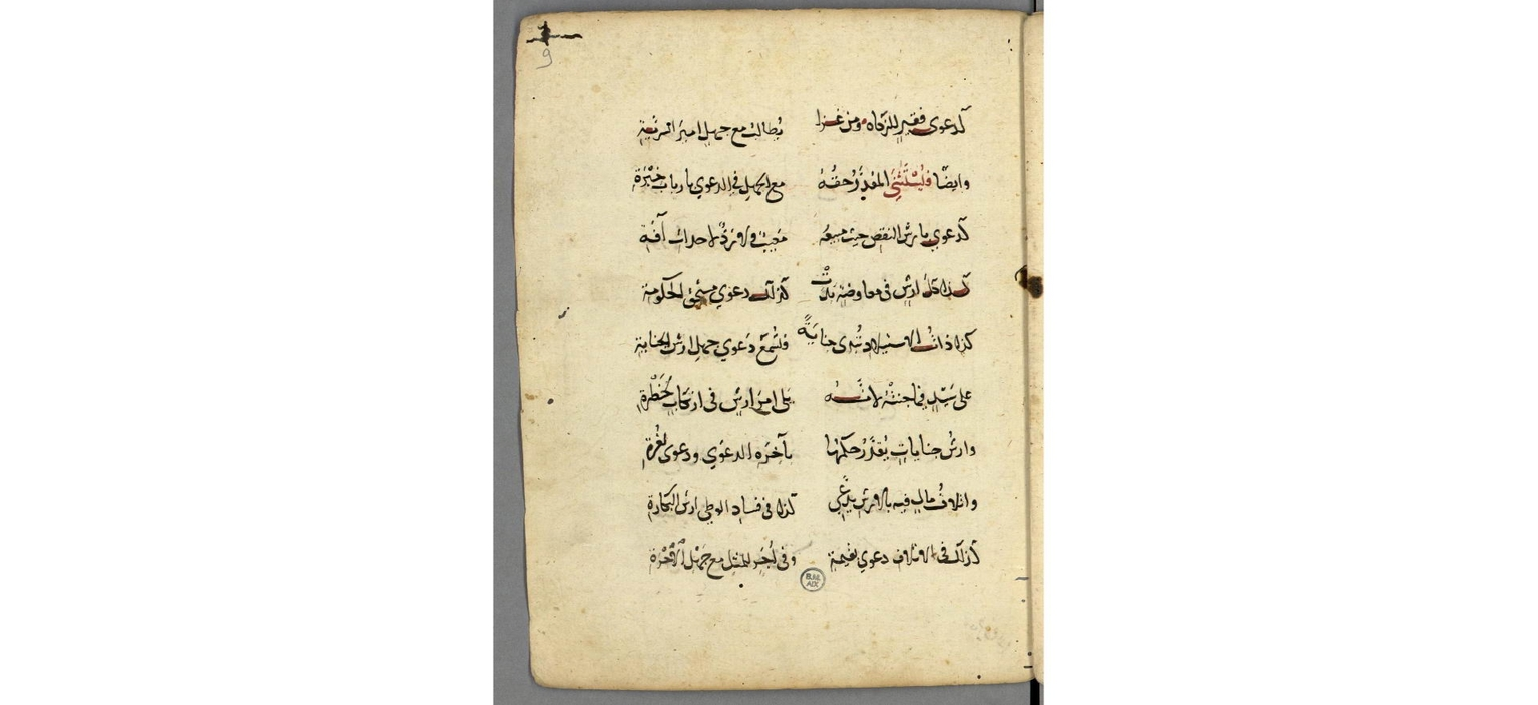 كدعوى فقير للزكاه ومن غزا يطالب مع جهل امير السرية
وايضا فليستثنى المقدر حقه مع الجهل في الدعوي بارباب خبرة
كدعوي بارش النقص حيث مبيعه معيب ولا رد لاحداث آفة
كذا كل ارش في معاوضة بدت كذلك دعوي مستحق الحكومة
كذا ذات الاستيلاد تبدى جناية فتسمع دعوي جهل ارش الجناية
على سيد فيما جنته لانه على امر ارش في ارتكاب
وارش جنايات يقدر حكمها بآخرة الدعوي ودعوى لغرة
واتلاف مال فيه بالارش يدعي كذا في فساد الوطي ارش البكارة
كذلك في الاتلاف دعوي بقيمة وفى اجر المثل مع جهل الاجرة